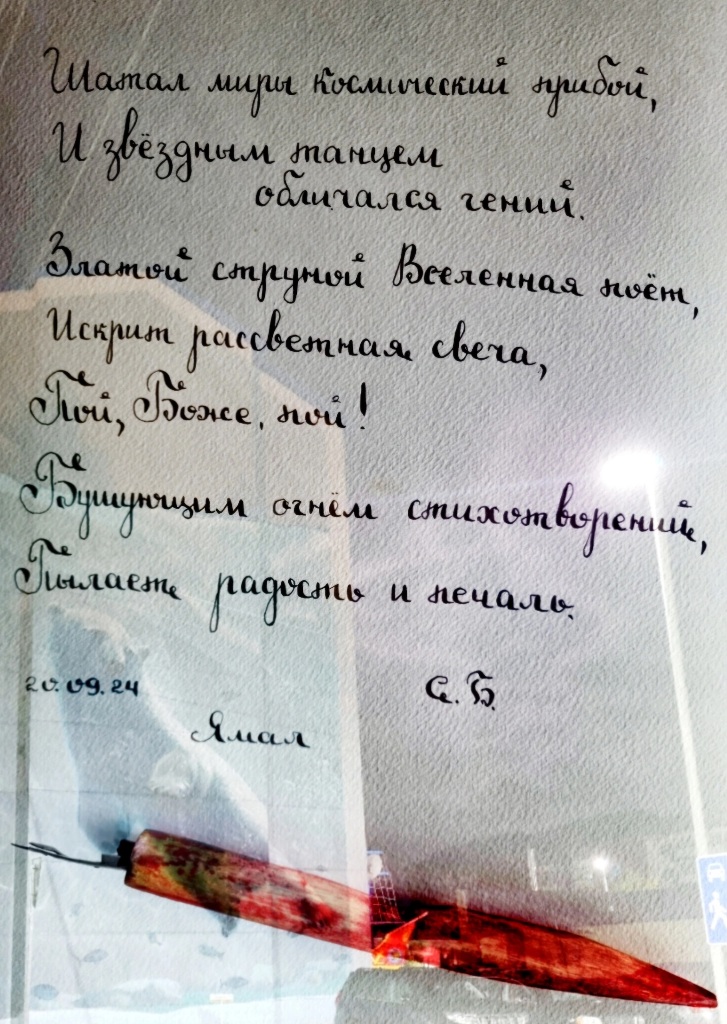 Шатал миры космический прибой,
И звёздным танцем
обличался гений.
Златой струной Вселенная поёт,
Искрит рассветная свеча,
Пой, Боже, пой!
Бушующим огнём стихотворений,
Пылает радость и печаль.
20.09.24
С.Б.
Ямал